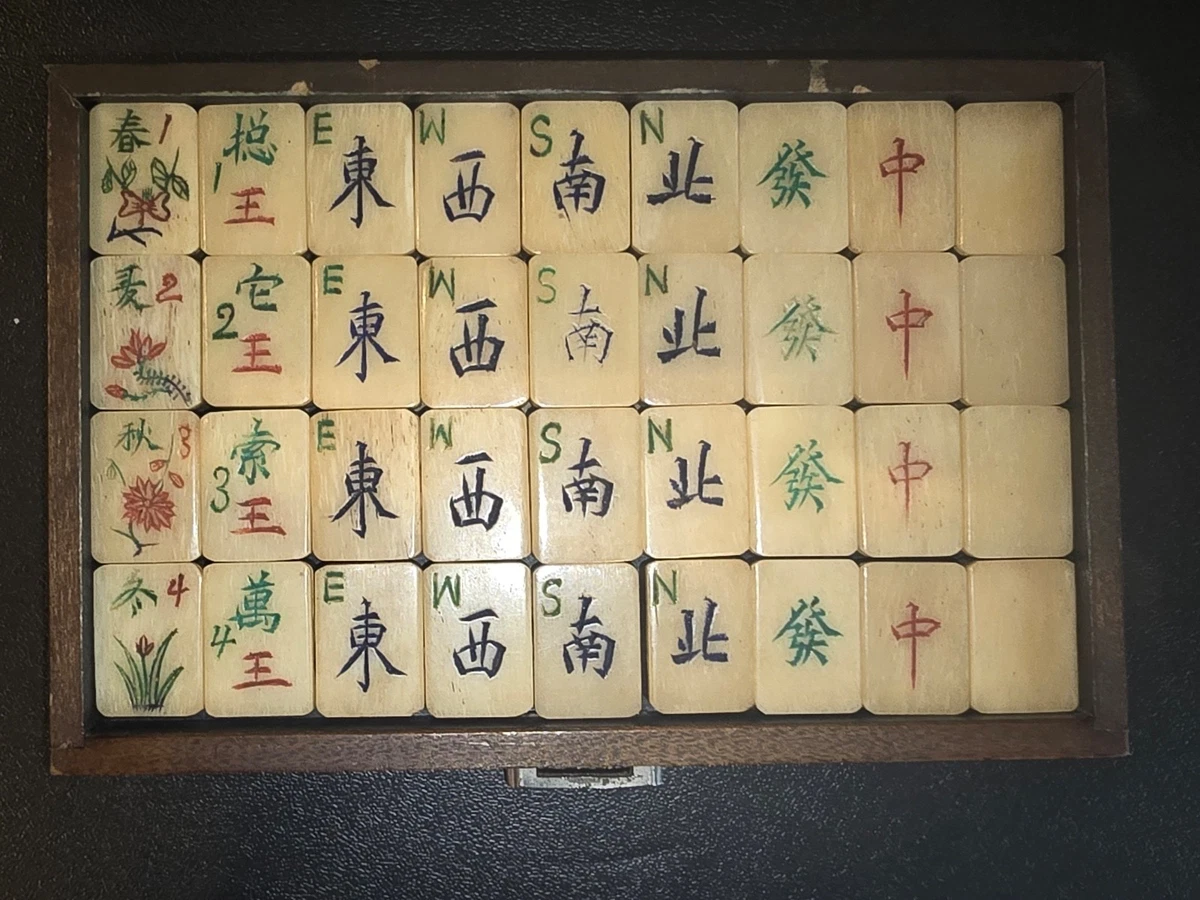 春 1 捴 1 王 E 東 W 西 S 南 N 北 發 中
夏 2 它 2 王 E 東 W 西 S 南 N 北 發 中
秋 3 索 3 王 E 東 W 西 S 南 N 北 發 中
冬 4 萬 4 王 E 東 W 西 S 南 N 北 發 中